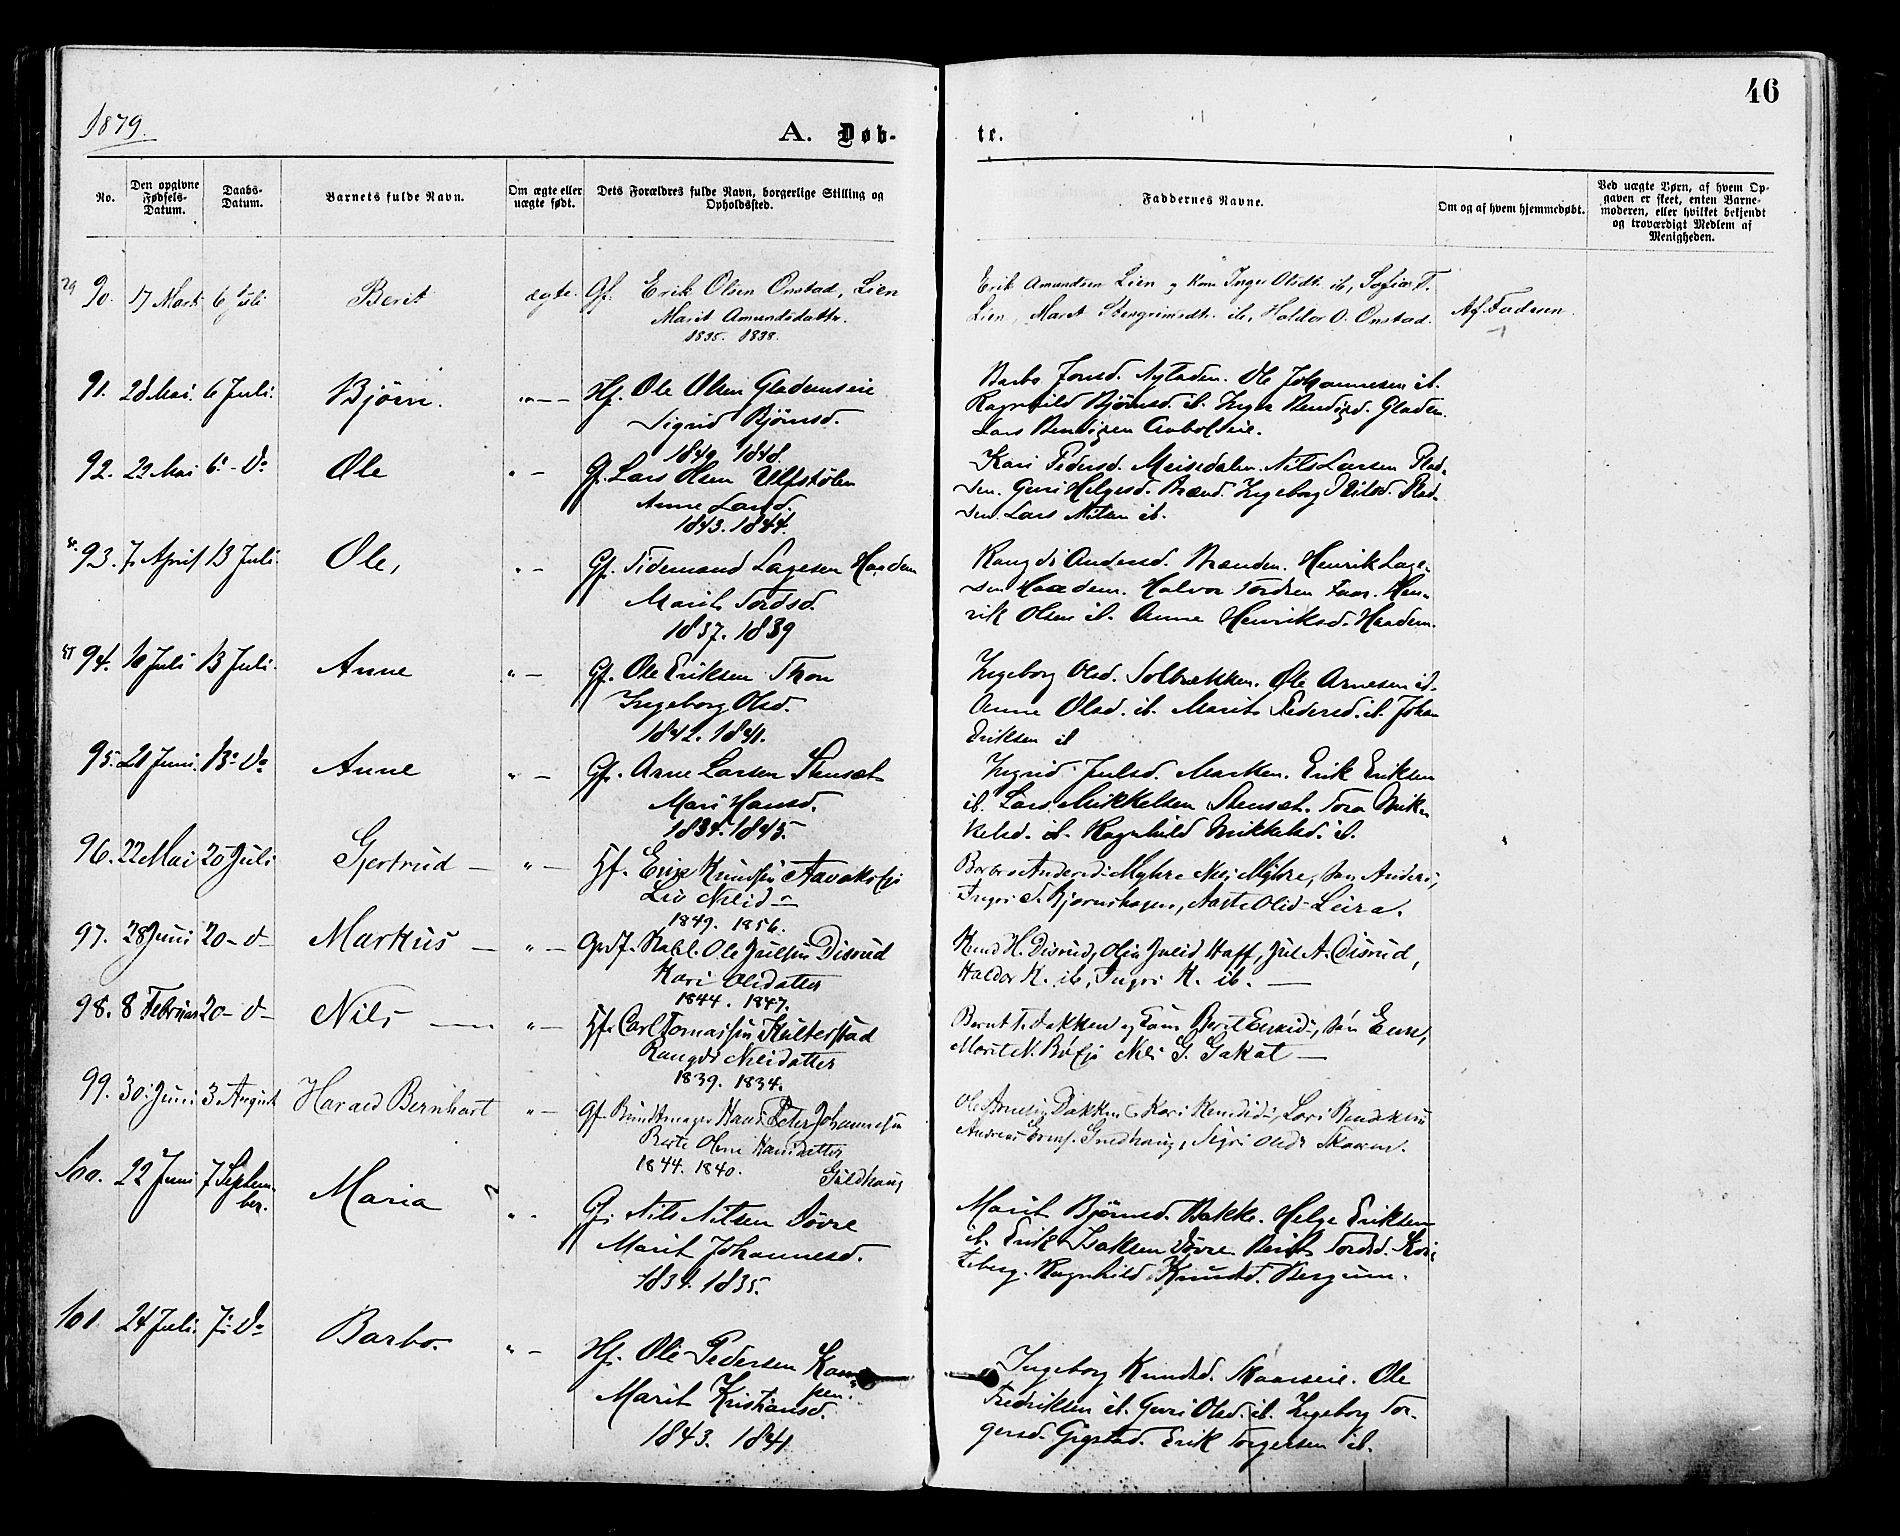 46
1879.
A. Døb-
te.
No.
Den opgivne Fødsels-Datum.
Daabs-Datum.
Barnets fulde Navn.
Om ægte eller uægte født.
Dets Forældres fulde Navn, borgerlige Stilling og Opholdssted.
Faddernes Navne.
Om og af hvem hjemmedøbt.
Ved uægte Børn, af hvem Op-
gaven er skeet, enten Barne-
moderen, eller hvilket bekjendt
og troværdigt Medlem af
Menigheden.
90. 17 Marts 6 Juli Berit ægte. Gf. Erik Olsen Onstad, Lien
Marit Amundsdattr.
1835. 1838.
Erik Amundsen Lien og Kone Inger Olsdt. ib, Sofia T.
Lien, Maret Stengrimsdt. ib, Haldor O. Onstad.
Af Faderen.
91. 28 Mai. 6 Juli. Bjørn. "— Hf. Ole Olsen Gladenseie
Sigrid Bjørnsd.
1849 1848.
Barbo Jonsd. Nyladen. Ole Johannesen ib.
Ragnhild Bjørnsd. ib. Inger Bendixd. Gladen.
Lars Bendixen
92. 22 Mai 6 - Do Ole " — Gf. Lars Olsen Ulfstølen
Anne Larsd.
1843. 1844.
Kari Pedersd. Meisedalen. Nils Larsen Plad-
sen. Guri Helgesd. Brænd. Ingeborg Nilsd. Plad-
sen. Lars Nilsen ib.
93. 7 April 13 Juli Ole, " — Gf. Tidemand Lagesen Haadem
Marit Tordsd.
1837. 1839
Rangdi Andersd. Brænden. Henrik Lage-
sen Haadem. Halvor Tordsen Faar. Hen-
rik Olsen ib. Anne Henriksd. Haadem.
94. 10 Juli 13 Juli. Anne " — Gf. Ole Eriksen Thon
Ingeborg Olsd.
1842. 1841.
Ingeborg Olsd. Solbrækken. Ole Arnesen ib.
Anne Olsd. ib. Marit Pedersd. ib. Johan
Eriksen ib
95. 21 Juni. 13 - Do Anne " — Gf. Arne Larsen Stensæt
Mari Hansd.
1834. 1845.
Ingrid Julsd. Marken. Erik Eriksen
ib. Lars Mikkelsen Stensæt. Tora Mik-
kelsd. ib. Ragnhild Mikkelsd. ib.
96. 22 Mai 20 Juli Gjertrud — " — Hf. Erik Knudsen
Liv Nilsd —
1849. 1856.
Myhre Nils Myhre,
Ingri S. Bjørnshagen, Aaste Olsd Leira.
97. 28 Juni 20 - d - Markus — " — Ole Julsen Disrud
Kari Olsdatter
1844. 1847.
Knud H. Disrud, Olia Julsd Haff, Jul A. Disrud,
Haldor K. ib, Ingri K. ib. —
98. 8 Februar 20 - d - Nils — " — Hf. Carl Tomassen Kulterstad
Rangdi Nilsdatter
1839. 1834.
Bernt T. Bakken og
Marit N. Nils G. Gakat —
99. 30 Juni 3 August Harald Bernhart " — Gf. Hans Peter Johannesen
Berte Oline Hansdatter
1844. 1840.
Guldhaug
Ole Arnesen Bakken Kari Knudsd
Guldhaug, Sigri Olsdt Skaren.
100. 22 Juni 7 Septem-
ber. Maria " - Gf. Nils Nilsen Døvre
Marit Johannesd.
1834. 1835.
Marit Bjørnsd. Bakke. Helge Eriksen
ib. Erik Isaksen Døvre Berit Tordsd.
Ragnhild Knudsd. Bergum.
101. 24 Juli. 7 - Do Barbo. " — Hf. Ole Pedersen Kam-
pen.
Marit Kristiansd.
1843. 1841
Ingeborg Knudsd. Skaarseie. Ole
Fredriksen ib. Guri Olsd. ib. Ingeborg Tor-
gersd. Gigstad. Erik Torgersen ib.